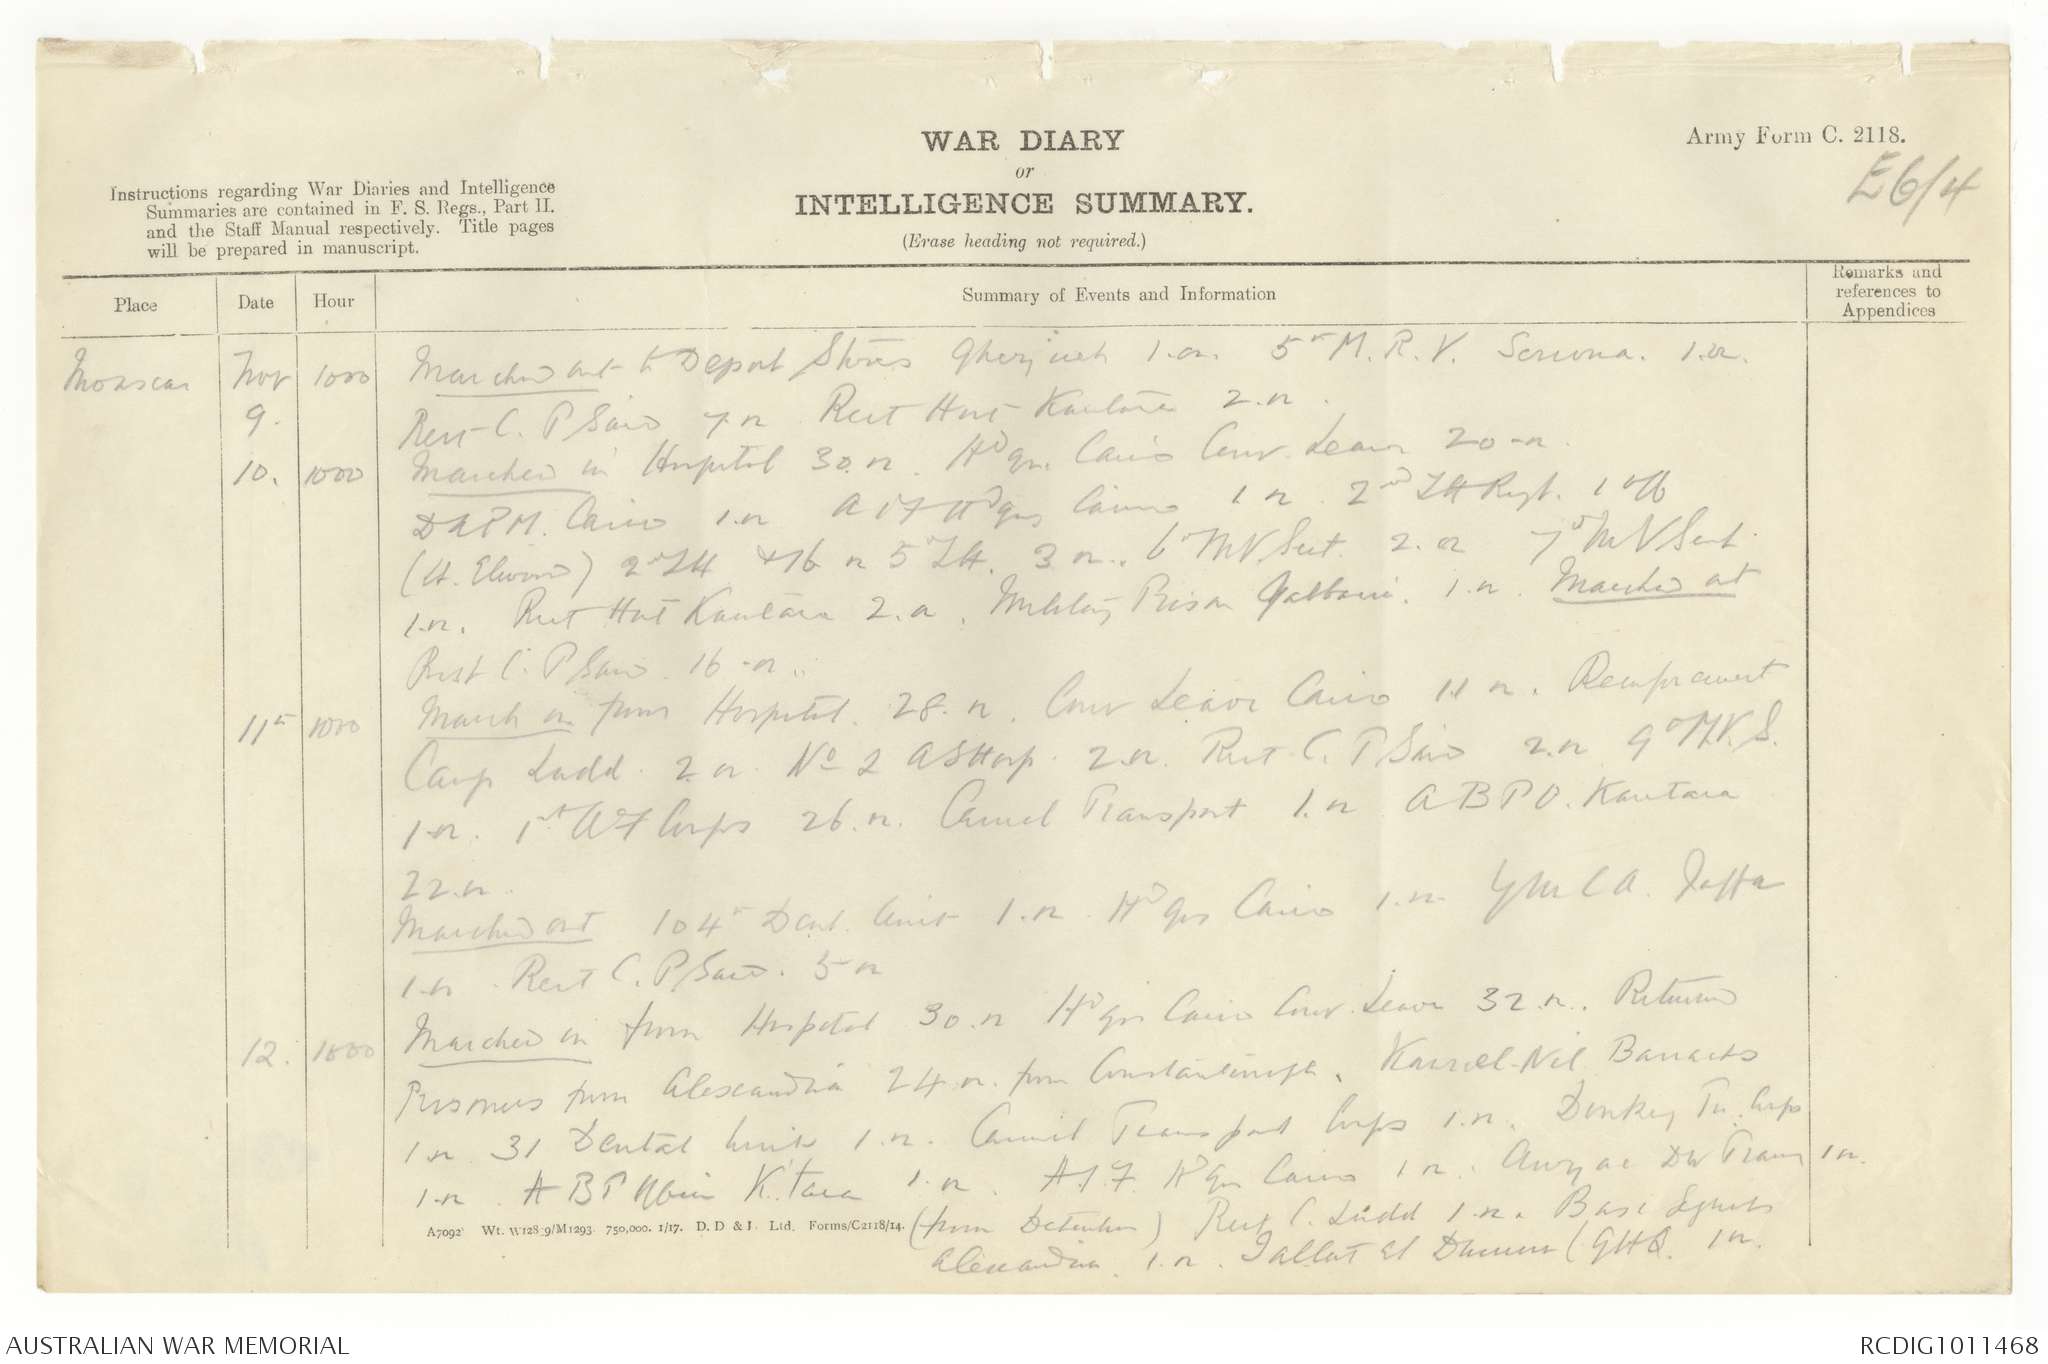 WAR DIARY
or
INTELLIGENCE SUMMARY.
(Erase heading not required.)
Army Form C. 2118.
E6/4
Instructions regarding War Diaries and Intelligence
Summaries are contained in F. S. Regs., Part II.
and the Staff Manual respectively. Title pages
will be prepared in manuscript.
Place
Date
Hour
Summary of Events and Information
Remarks and
references to
Appendices
Moascar Nov 1000 Marched out to Depot Stores 1.or. 5th M.R.V. 1.or.
9. Rest C. P Said 7 or Rest Hut Kantara 2.or.
10. 1000 Marched in Hospital 30.or. Hd qrs. Cairo Conv. Leave 20 or.
DAPM. Cairo 1.or AIF Hd qrs Cairo 1 or. 2nd LH Regt. 1 off
(Lt. ) 2nd LH 76 or 5th LH. 3 or.. 6th MV Sect. 2.or 7th MV Sect.
1.or. Rest Hut Kantara 2.or. Military Prison 1.or. Marched out
Rest C. P Said 16 or.
11th 1000 March in from Hospital. 28.or. Conv Leave Cairo 11 or. Reinforcement
Camp Ludd. 2 or. No 2 ASHosp. 2.or. Rest C. P Said 2.or 9th M.V.S.
1.or. 1st Corps 26.or. Camel Transport 1.or A B P O. Kantara
22.or.
Marched out 104th Dent. Unit 1.or. Hd qrs Cairo 1.or. YMCA. Jaffa
1.or. Rest C. P Said. 5 or
12. 1000 Marched in from Hospital 30.or Hd qrs Cairo Conv. Leave 32.or.. Returned
Prisoners from Alexandria 24.or. from Constantinople. Kasr-el-Nil Barracks
1.or 31 Dental Unit 1.or. Camel Transport Corps 1.or. Donkey Tr. Corps
1.or. A B P K.tara 1.or. A.I.F. Hd qrs Cairo 1 or. Anzac Dv Train 1 or.
(from Detention) Rest C. Ludd 1.or. Base Signals
Alexandria. 1.or. (GHQ. 1 or.
A7092 Wt. W128 9/M1293 750,000. 1/17. D. D & L Ltd. Forms/C2118/14.
AUSTRALIAN WAR MEMORIAL
RCDIG1011468